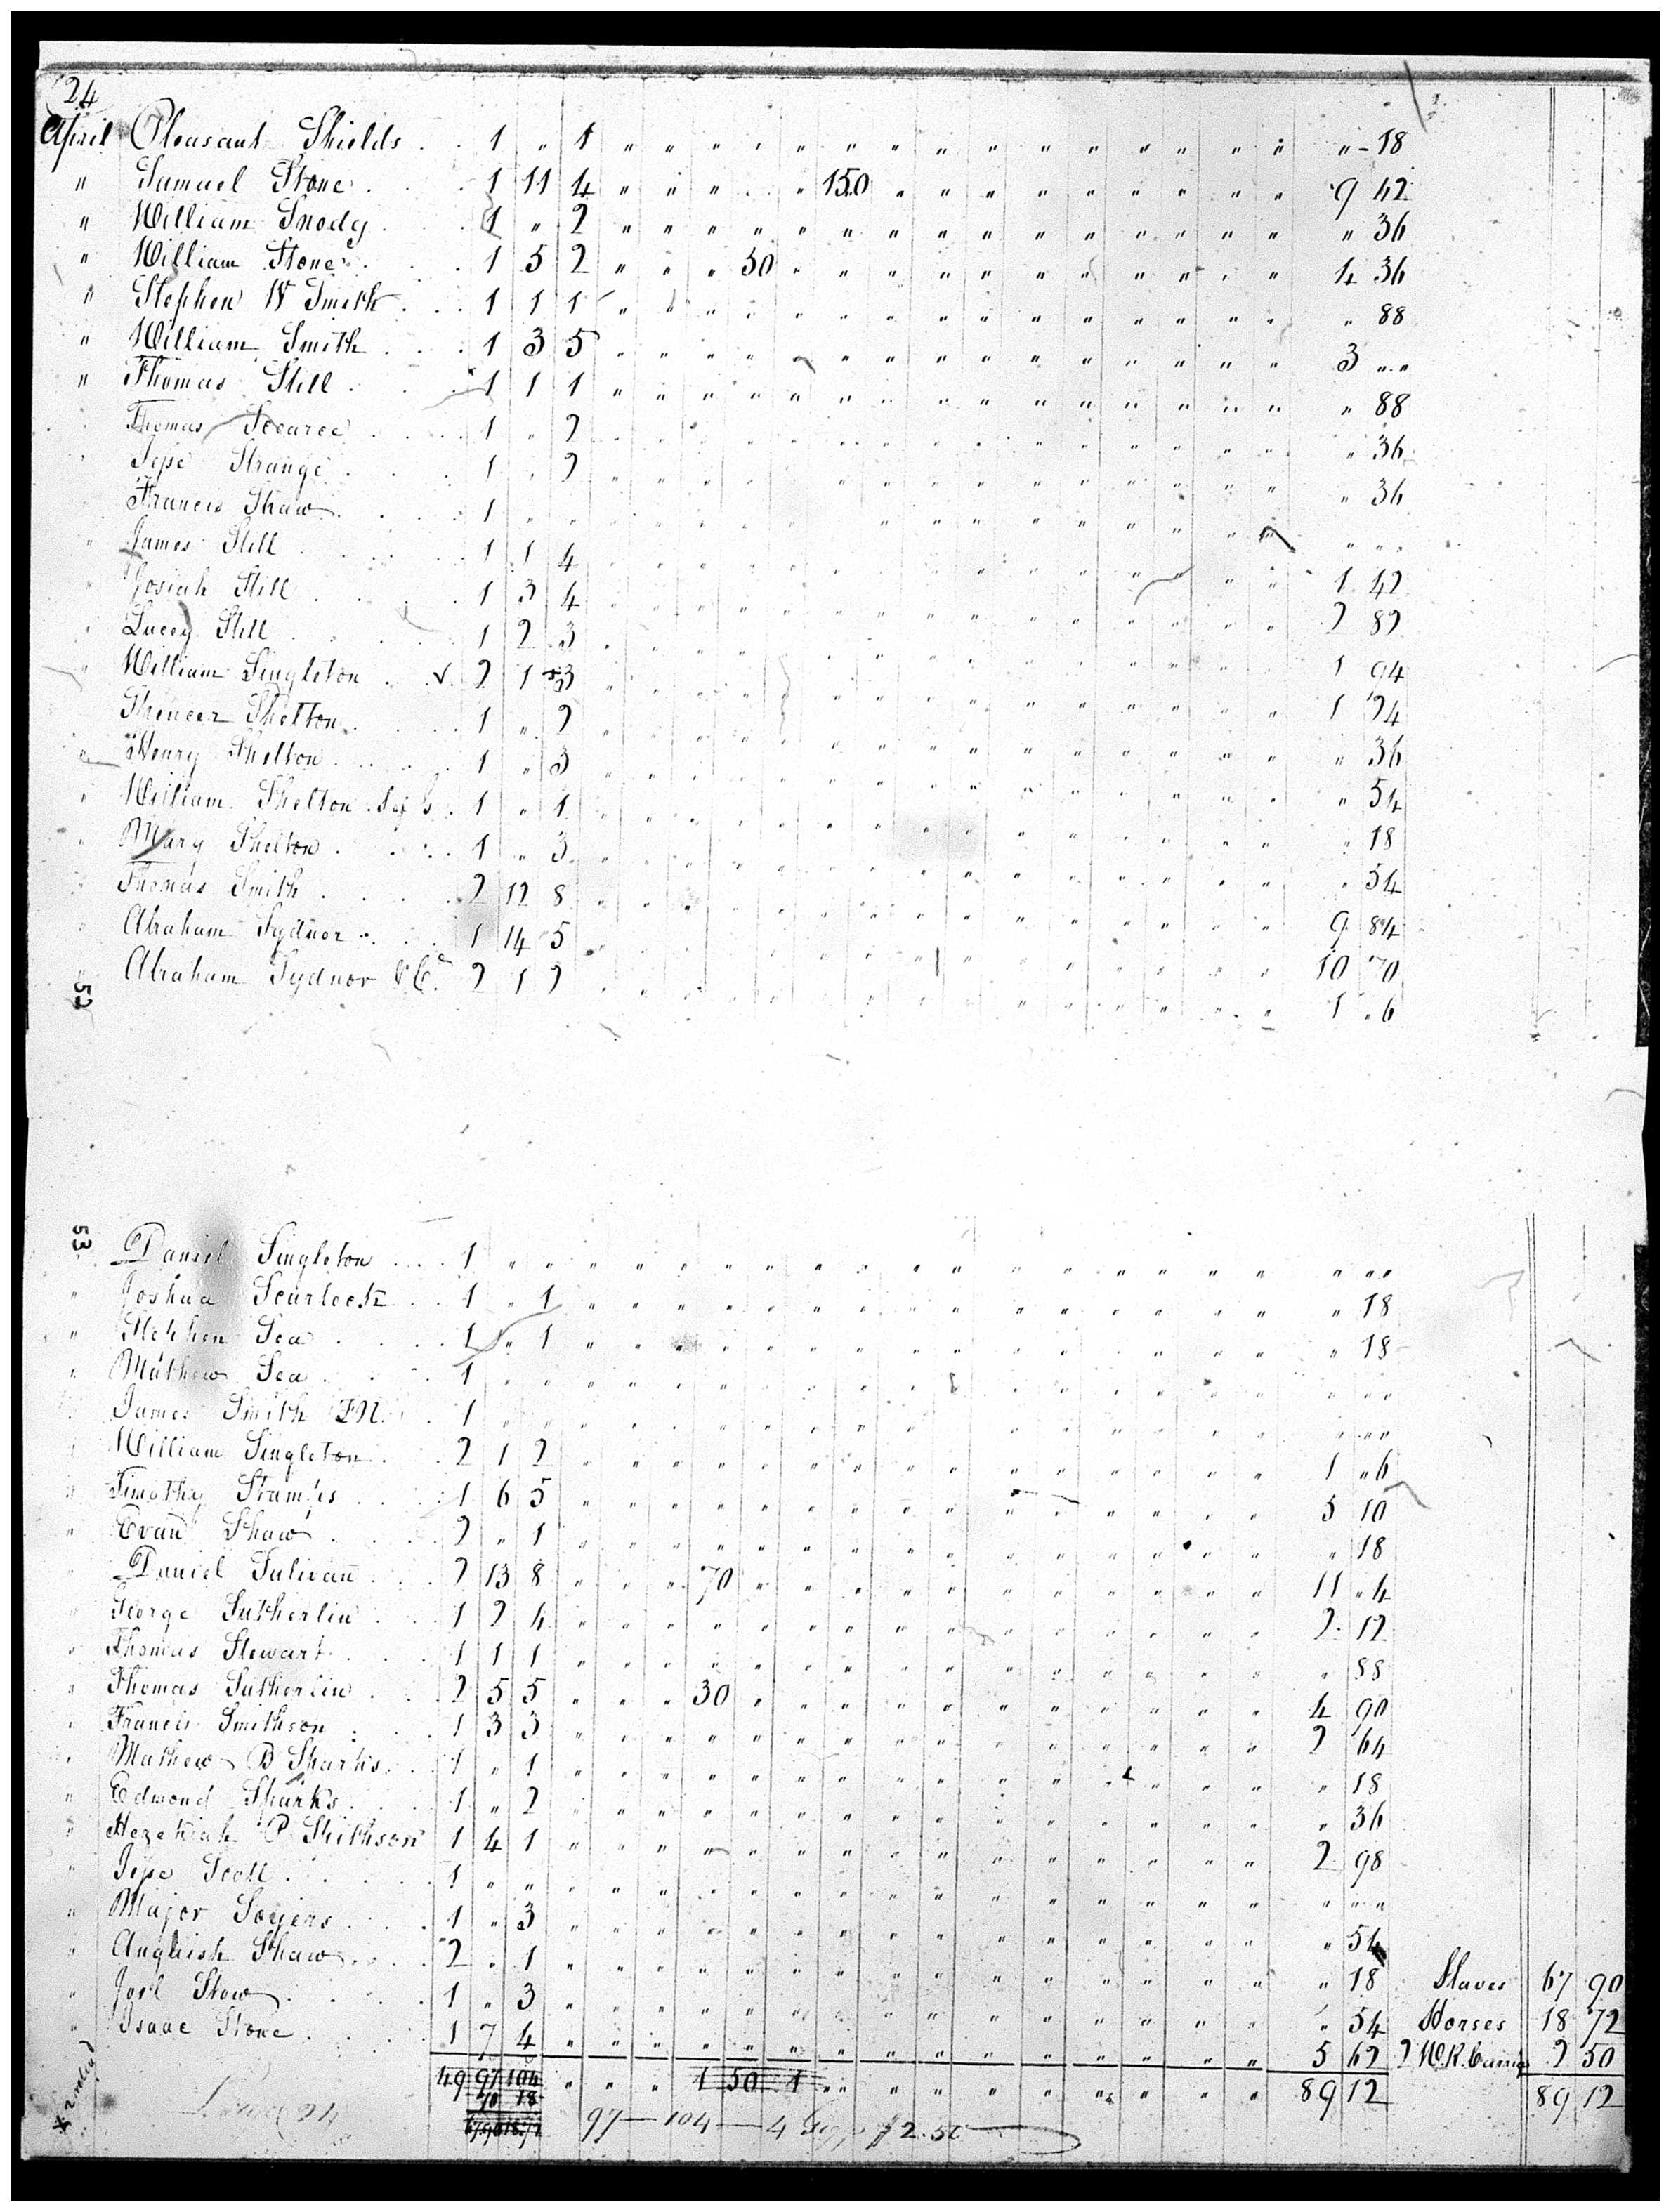 24
April Pleasant Shields . . 1 " 1 " " " " " " " " " " " " " " " " " 18
" Samuel Stone . . . 1 11 4 " " " " 150 " " " " " " " " " " 9 42
" William Snody . . 1 " 2 " " " " " " " " " " " " " " " " " 36
" William Stone . . 1 5 2 " " " 50 " " " " " " " " " " " 4 36
" Stephen W Smith . . . 1 1 1 " " " " " " " " " " " " " " " " 88
" William Smith . . . 1 3 5 " " " " " " " " " " " " " " " 3 " "
" Thomas Still . . 1 1 1 " " " " " " " " " " " " " " " " 88
" Thomas Scearce . . . 1 " 2 " " " " " " " " " " " " " " " " 36
" Jesse Strange . . . 1 " 2 " " " " " " " " " " " " " " " " 36
" Francis Shaw . . . 1 " " " " " " " " " " " " " " " " " " "
" James Still . . . 1 1 4 " " " " " " " " " " " " " " " 1 42
" Josiah Still . . . 1 3 4 " " " " " " " " " " " " " " " 2 82
" Lucey Still . . . 1 2 3 " " " " " " " " " " " " " " " 1 94
" William Singleton . . 2 1 3 " " " " " " " " " " " " " " " 1 24
" Spencer Shelton . . . 1 " 2 " " " " " " " " " " " " " " " " 36
" Henry Shelton . . . 1 " 3 " " " " " " " " " " " " " " " " 54
" William Shelton . 1 " 1 " " " " " " " " " " " " " " " " 18
" Mary Shelton . . . 1 " 3 " " " " " " " " " " " " " " " " 54
" Thomas Smith . . . 2 12 8 " " " " " " " " " " " " " " " 9 84
" Abraham Sydnor . . . 1 14 5 " " " " " " " " " " " " " " " 10 70
" Abraham Sydnor & Co. 2 1 2 " " " " " " " " " " " " " " " 1 " 6
52
53
Daniel Singleton . . . 1 " " " " " " " " " " " " " " " " " " "
" Joshua Scurlock . . 1 " 1 " " " " " " " " " " " " " " " " 18
" Stephen Sea . . . 1 " 1 " " " " " " " " " " " " " " " " 18
" Mathew Sea . . . 1 " " " " " " " " " " " " " " " " " " "
" James Smith . 1 " " " " " " " " " " " " " " " " " " "
" William Singleton . . 2 1 2 " " " " " " " " " " " " " " " 1 " 6
" Timothy Stamps . . . 1 6 5 " " " " " " " " " " " " " " " 5 10
" Evan Shaw . . . 2 " 1 " " " " " " " " " " " " " " " " 18
" Daniel Sulivan . . . 2 13 8 " " " 70 " " " " " " " " " " " 11 " 4
" George Sutherlin . . 1 2 4 " " " " " " " " " " " " " " " 2 12
" Thomas Stewart . . . 1 1 1 " " " " " " " " " " " " " " " " 88
" Thomas Sutherlin . . 2 5 5 " " " 30 " " " " " " " " " " " 4 90
" Francis Smithson . . 1 3 3 " " " " " " " " " " " " " " " 2 64
" Mathew B Sparks . . 1 " 1 " " " " " " " " " " " " " " " " 18
" Edmond Sparks . . . 1 " 2 " " " " " " " " " " " " " " " " 36
" Hezekiah P Smithson 1 4 1 " " " " " " " " " " " " " " " 2 98
" Jesse Scott . . . 1 " " " " " " " " " " " " " " " " " " "
" Major Soyers . . . 1 " 3 " " " " " " " " " " " " " " " " 54
" Anguish Shaw . . . 2 " 1 " " " " " " " " " " " " " " " " 18 Slaves 67 90
" Joel Stow . . . 1 " 3 " " " " " " " " " " " " " " " " 54 Horses 18 72
" Isaac Stone . . . 1 7 4 " " " " " " " " " " " " " " " 5 62 2 W.R. Carriag 2 50
49 97 104 " " " 1 50 1 " " " " " " " " " " 89 12 89 12
70 18
67.90 18.72 97 — 104 — 4 Gigs $2.50